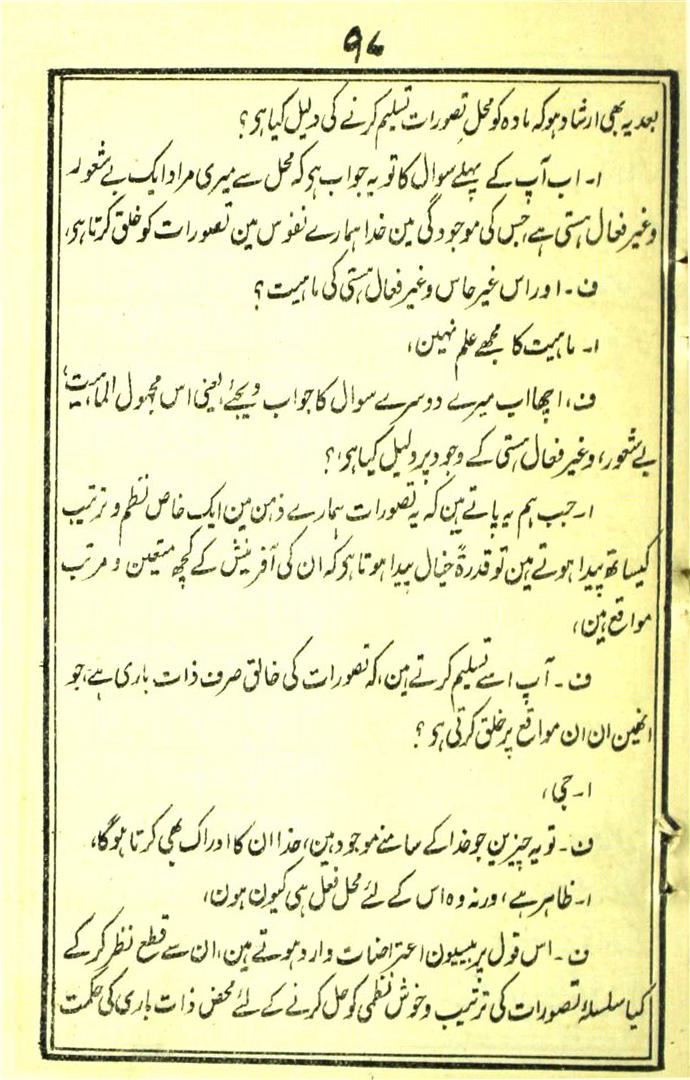 ۹۷
بعد یہ بھی ارشاد ہو کہ مادہ کو محلِ تصورات تسلیم کرنے کی دلیل کیا ہو؟
ا۔ اب آپ کے پہلے سوال کا تو یہ جواب ہو کہ محل سے میری مراد ایک بے شعور
وغیر فعال ہستی ہے، جس کی موجودگی مین خدا ہمارے نفوس مین تصورات کو خلق کرتا ہو،
ف۔ اور اس غیر حاس وغیر فعال ہستی کی ماہیت؟
ا۔ ماہیت کا مجھے علم نہین،
ف، اچھا اب میرے دوسرے سوال کا جواب دیجئے، یعنی اس مجہول الماہیت،
بے شعور، وغیر فعال ہستی کے وجود پر دلیل کیا ہو،؟
ا۔ جب ہم یہ پاتے ہین کہ یہ تصورات ہمارے ذہن مین ایک خاص نظم و ترتیب
کیساتھ پیدا ہوتے ہین تو قدرۃً خیال پیدا ہوتا ہو کہ ان کی آفرینش کے کچھ متعین و مرتب
مواقع ہین،
ف۔ آپ اسے تسلیم کرتے ہین، کہ تصورات کی خالق صرف ذات باری ہے، جو
انھین ان ان مواقع پر خلق کرتی ہو؟
ا۔ جی،
ف۔ تو یہ چیزین جو خدا کے سامنے موجود ہین، خدا ان کا ادراک بھی کرتا ہوگا،
ا۔ ظاہر ہے، ورنہ وہ اس کے لئے محل فعل ہی کیون ہون،
ف۔ اس قول پر بیسیون اعتراضات وارد ہوتے ہین، ان سے قطع نظر کر کے
کیا سلسلۂ تصورات کی ترتیب و خوش نظمی کو حل کرنے کے لئے محض ذات باری کی حکمت